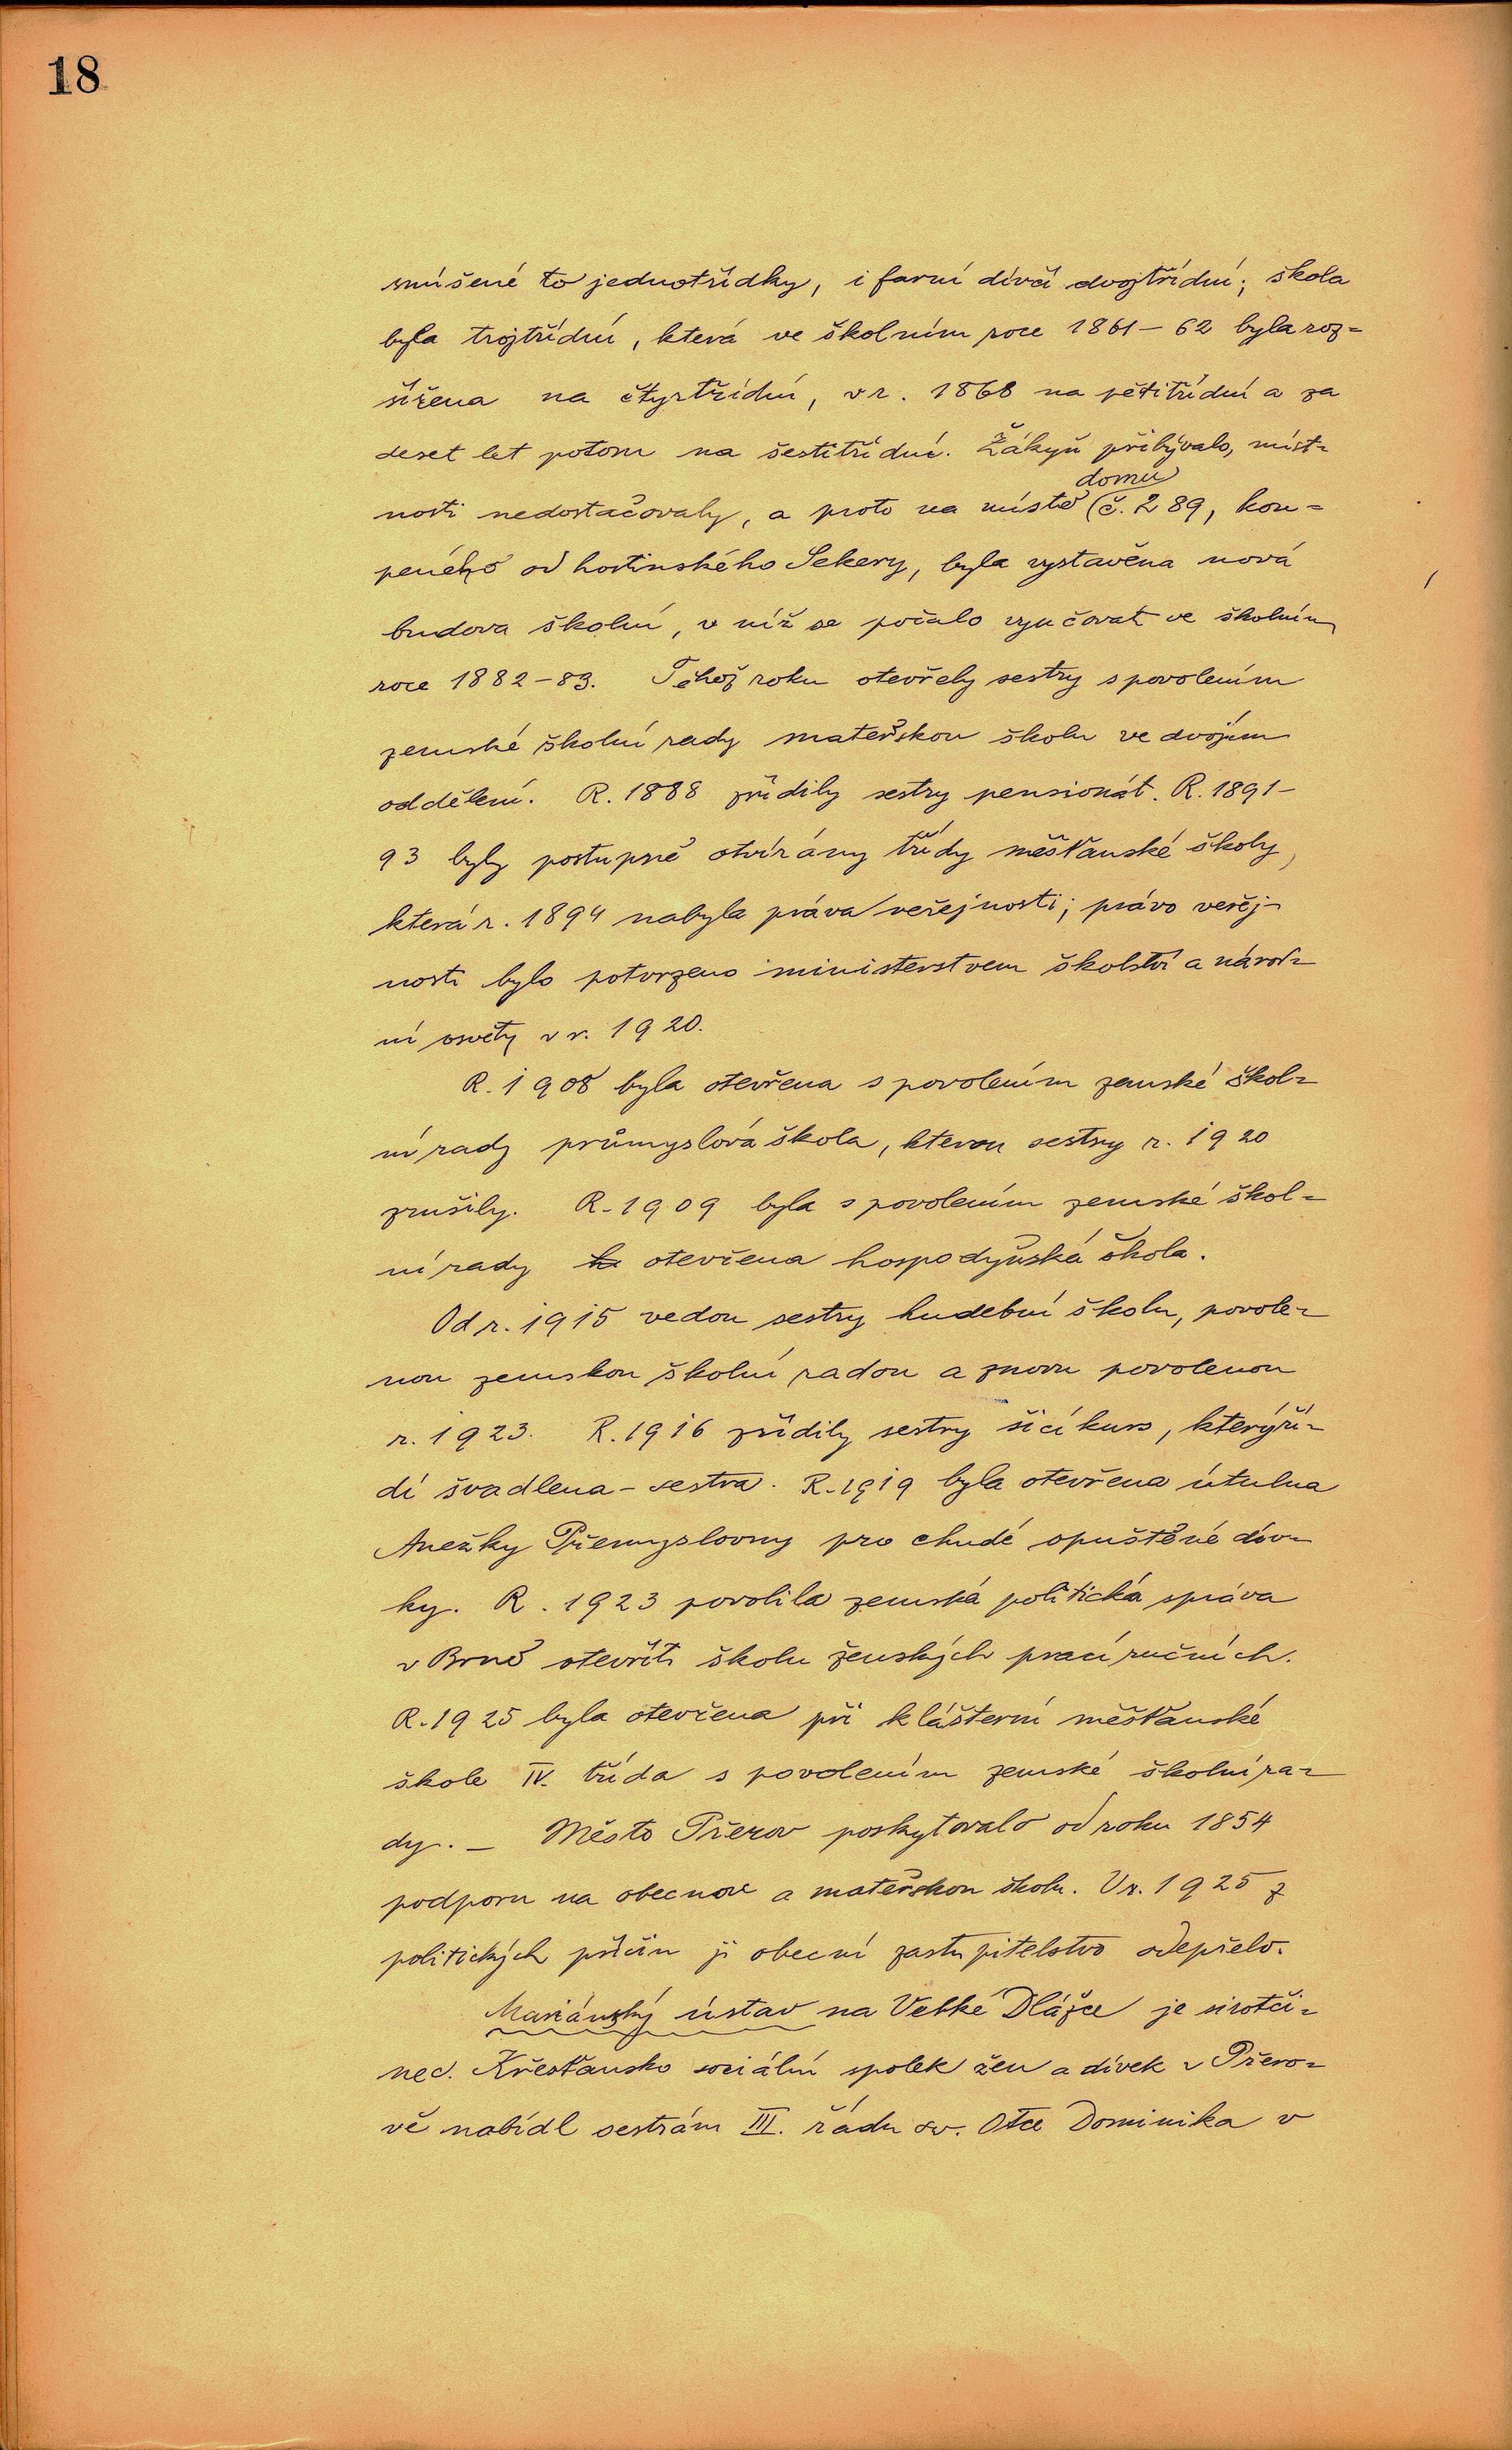 18
smíšené to jednotřídky, i farní dívčí dvojtřídní; škola
byla trojtřídní, která ve školním roce 1861–62 byla roz=
šířena na čtyrtřídní, v r. 1868 na pětitřídní a za
deset let potom na šestitřídní. Žákyň přibývalo, míst=
domu
nosti nedostačovaly, a proto na místě (č. 289, kou=
peného od hostinského Sekery, byla vystavěna nová
budova školní, v níž se počalo vyučovati ve školním
roce 1882–83. Téhož roku otevřely sestry s povolením
zemské školní rady mateřskou školu ve dvojím
oddělení. R. 1888 zřídily sestry pensionát. R. 1891–
93 byly postupně otvírány třídy měšťanské školy,
která r. 1894 nabyla práva veřejnosti; právo veřej-
nosti bylo potvrzeno ministerstvem školství a národ=
ní osvěty v r. 1920.
R. 1908 byla otevřena s povolením zemské škol=
ní rady průmyslová škola, kterou sestry r. 1920
zrušily. R. 1909 byla s povolením zemské škol=
ní rady otevřena hospodyňská škola.
Od r. 1915 vedou sestry hudební školu, povole=
nou zemskou školní radou a znovu povolenou
r. 1923. R. 1916 zřídily sestry šicí kurs, který ří=
dí švadlena-sestra. R. 1919 byla otevřena útulna
Anežky Přemyslovny pro chudé opuštěné dív=
ky. R. 1923 povolila zemská politická správa
v Brně otevříti školu ženských prací ručních.
R. 1925 byla otevřena při klášterní měšťanské
škole IV. třída s povolením zemské školní ra=
dy. – Město Přerov poskytovalo od roku 1854
podporu na obecnou a mateřskou školu. V r. 1925 z
politických příčin ji obecní zastupitelstvo odepřelo.
Mariánský ústav na Velké Dlážce je sirotči=
nec. Křesťansko sociální spolek žen a dívek v Přero=
vě nabídl sestrám III. řádu sv. Otce Dominika v